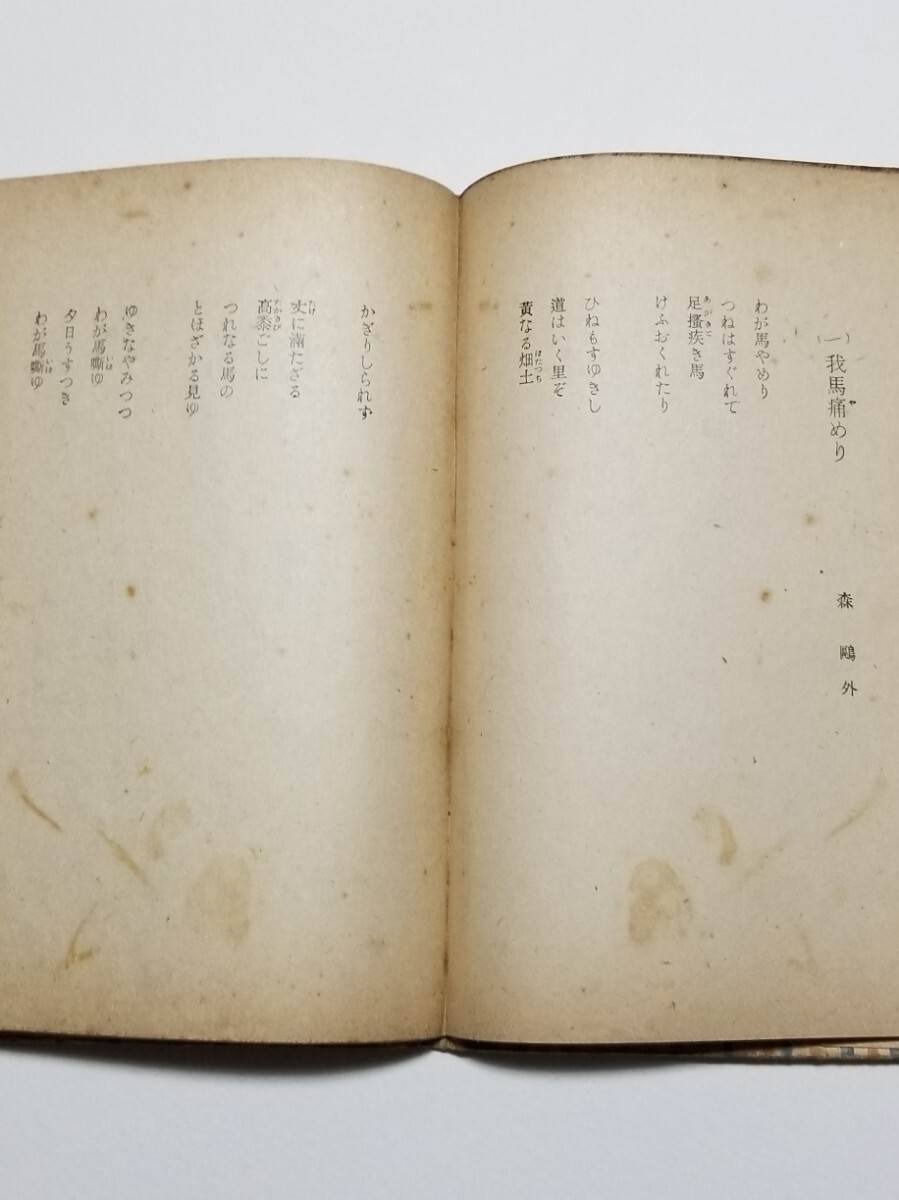 (一) 我馬痛めり
森鷗外
わが馬やめり
つねはすぐれて
足搔疾き馬
けふおくれたり
ひねもすゆきし
道はいく里ぞ
黃なる畑土
かぎりしられず
丈に滿たざる
高黍ごしに
つれなる馬の
とほざかる見ゆ
ゆきなやみつつ
わが馬嘶ゆ
夕日うすつき
わが馬嘶ゆ